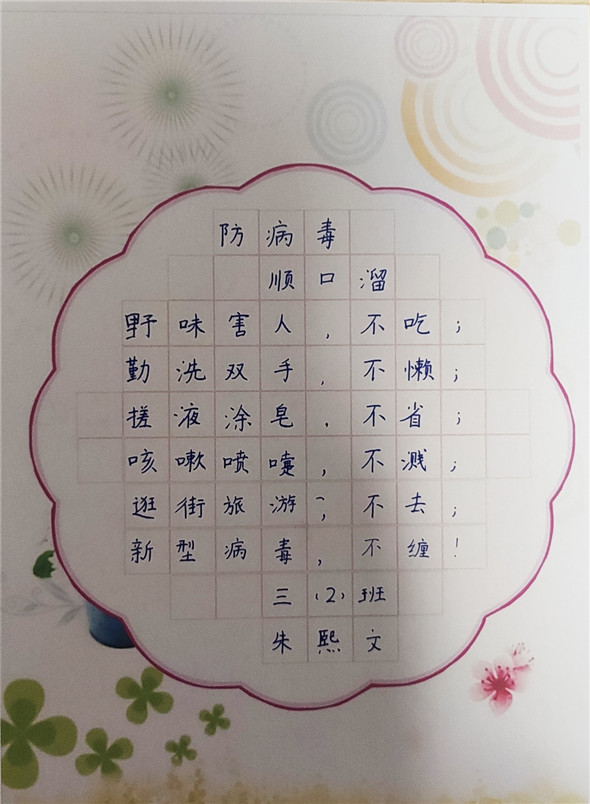 防病毒
顺口溜
野味害人，不吃；
勤洗双手，不懒；
搓液涂皂，不省；
咳嗽喷嚏，不溅；
逛街旅游，不去；
新型病毒，不缠！
三（2）班
朱熙文